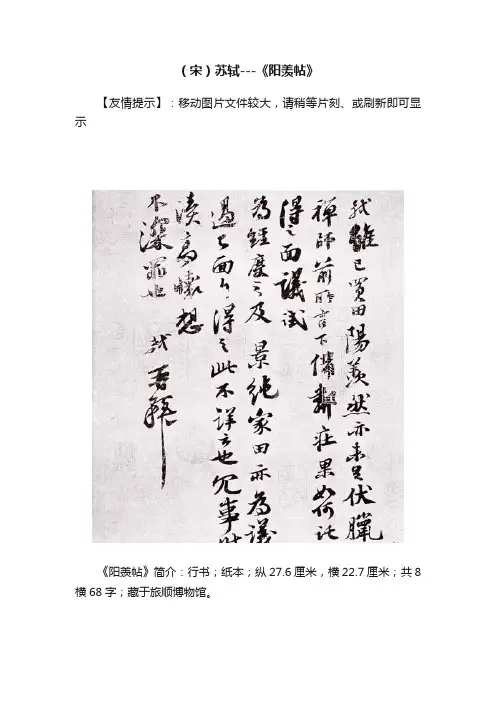 （宋）苏轼---《阳羡帖》
【友情提示】：移动图片文件较大，请稍等片刻、或刷新即可显
示
軾雖已買田陽羨然亦未足伏臘
禪師前所言下備鄰莊果如何託
得之面議試
為經度之及 景純家田亦為議
過已面白得之此不詳云也冗事時
瀆高懷想
不深罪也 軾再拜
《阳羡帖》简介：行书；纸本；纵27.6厘米，横22.7厘米；共8
横68字；藏于旅顺博物馆。